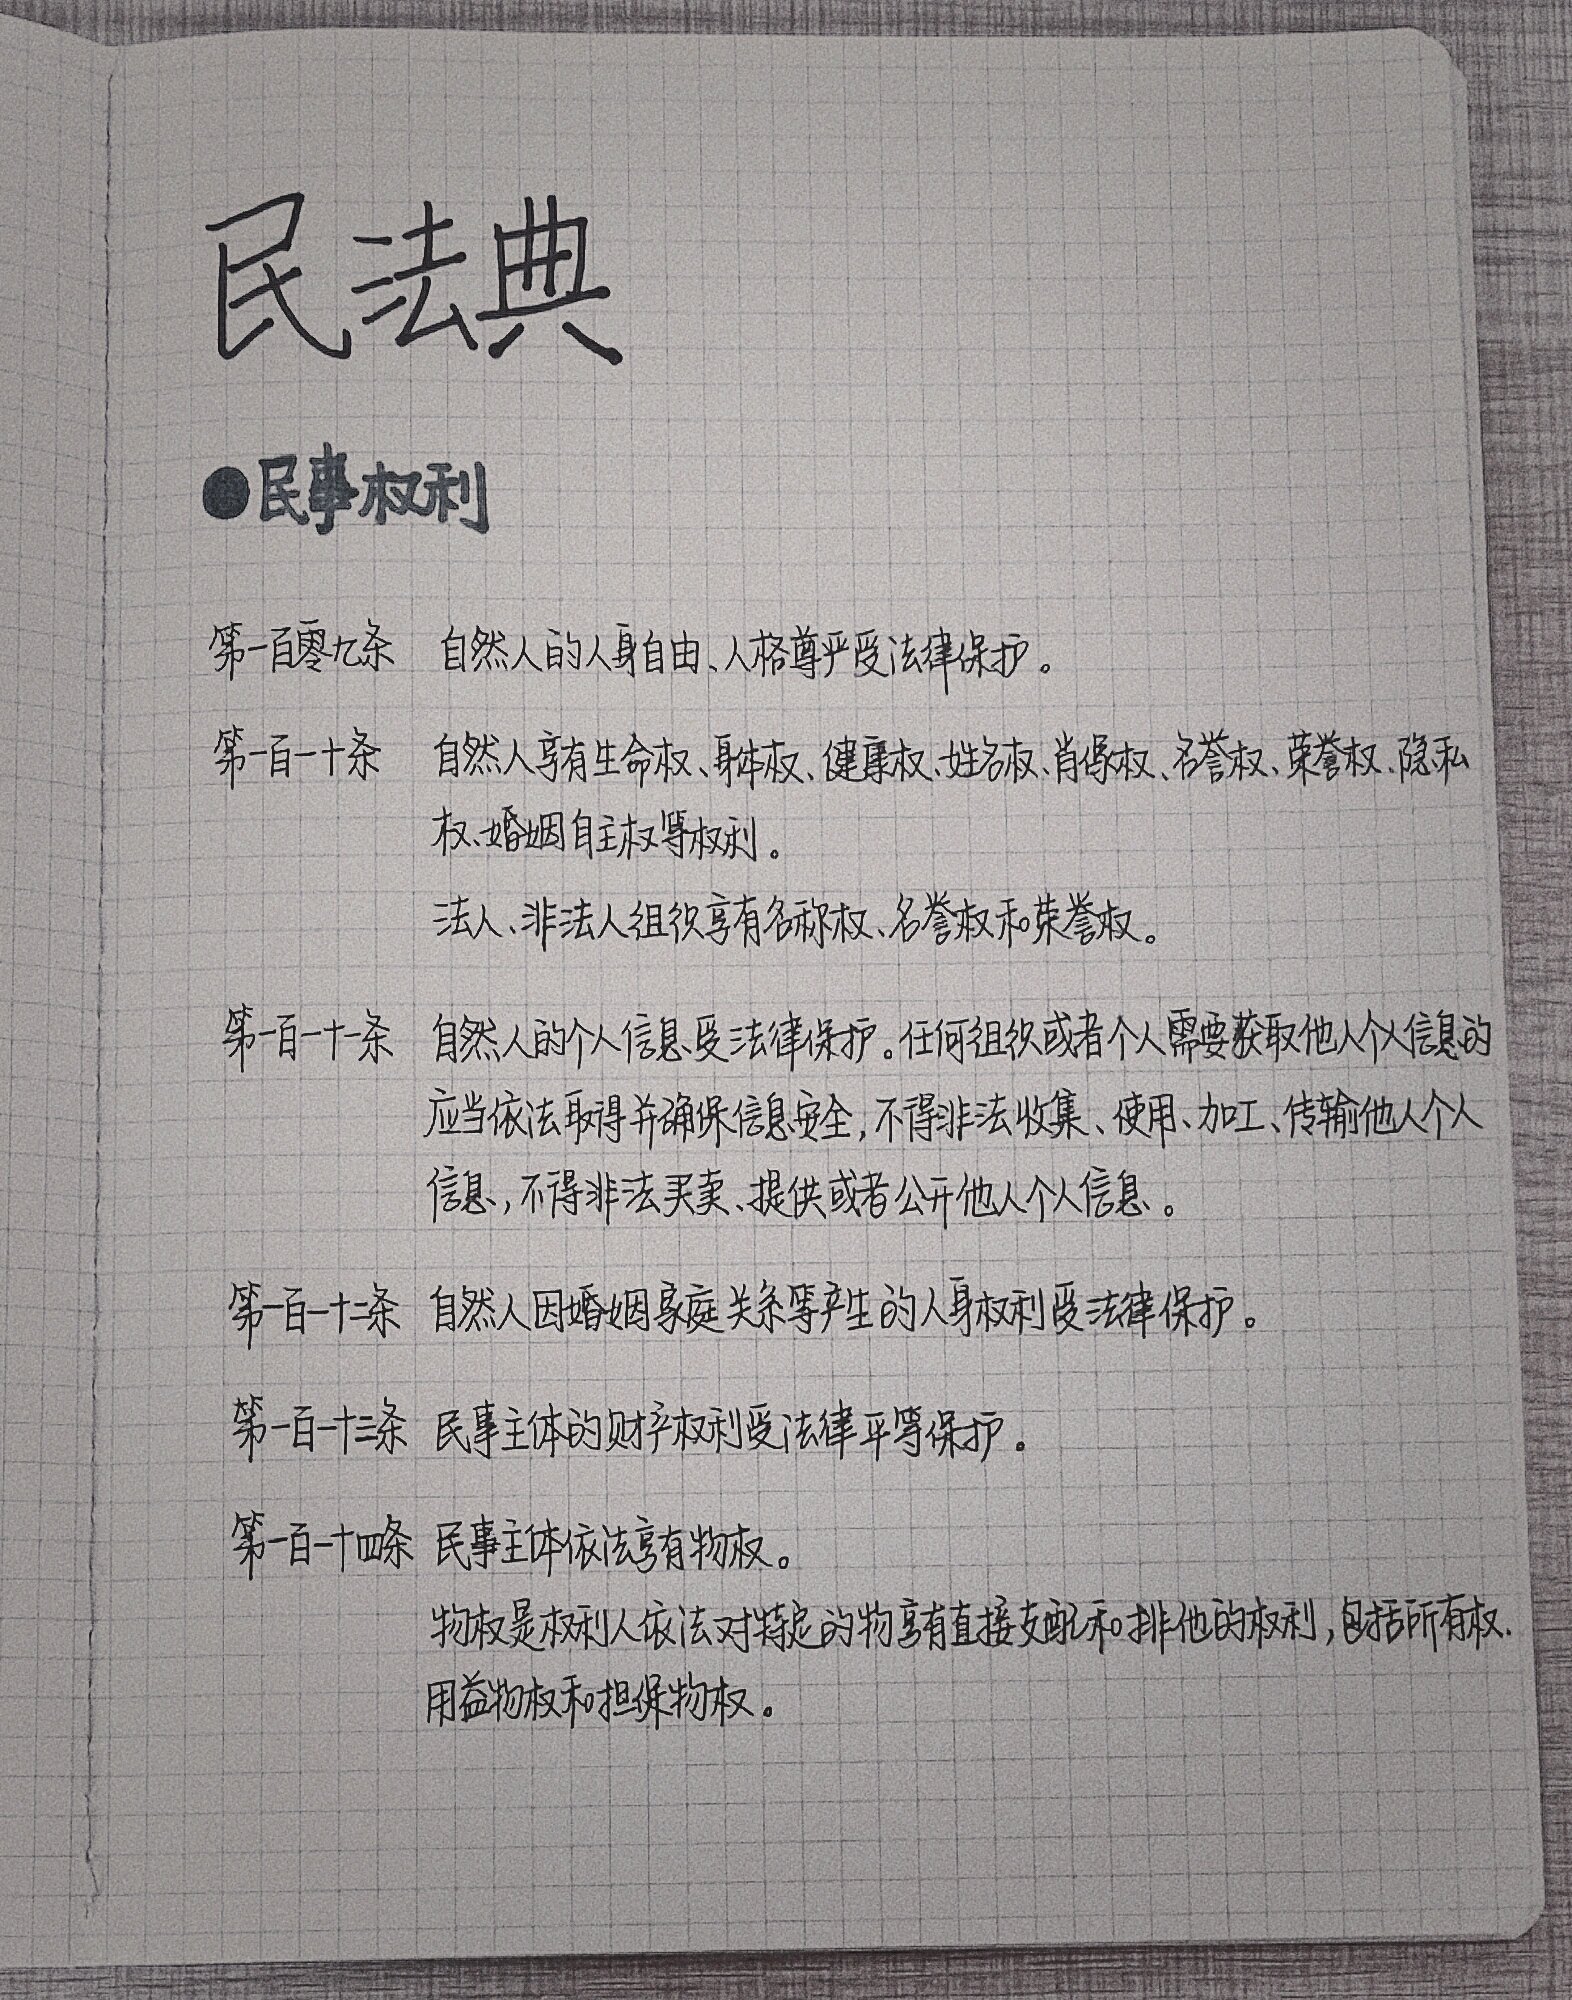 民法典
●民事权利
第一百零九条 自然人的人身自由、人格尊严受法律保护。
第一百一十条 自然人享有生命权、身体权、健康权、姓名权、肖像权、名誉权、荣誉权、隐私
权、婚姻自主权等权利。
法人、非法人组织享有名称权、名誉权和荣誉权。
第一百一十一条 自然人的个人信息受法律保护。任何组织或者个人需要获取他人个人信息的
应当依法取得并确保信息安全,不得非法收集、使用、加工、传输他人个人
信息,不得非法买卖、提供或者公开他人个人信息。
第一百一十二条 自然人因婚姻家庭关系等产生的人身权利受法律保护。
第一百一十三条 民事主体的财产权利受法律平等保护。
第一百一十四条 民事主体依法享有物权。
物权是权利人依法对特定的物享有直接支配和排他的权利,包括所有权、
用益物权和担保物权。